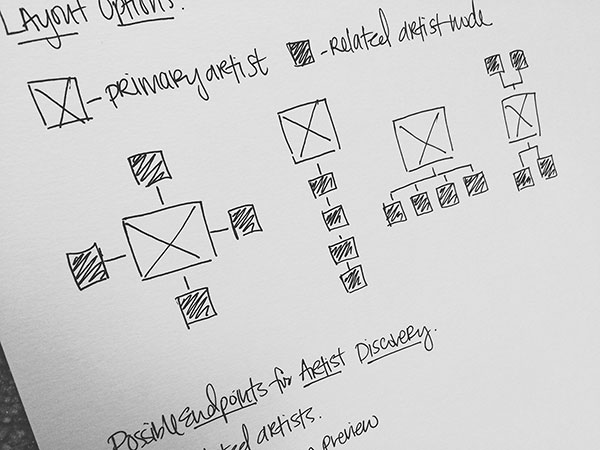 Layout Options:
- primary artist
- Related artist node
Possible Endpoints for Artist Discovery.
artists.
preview